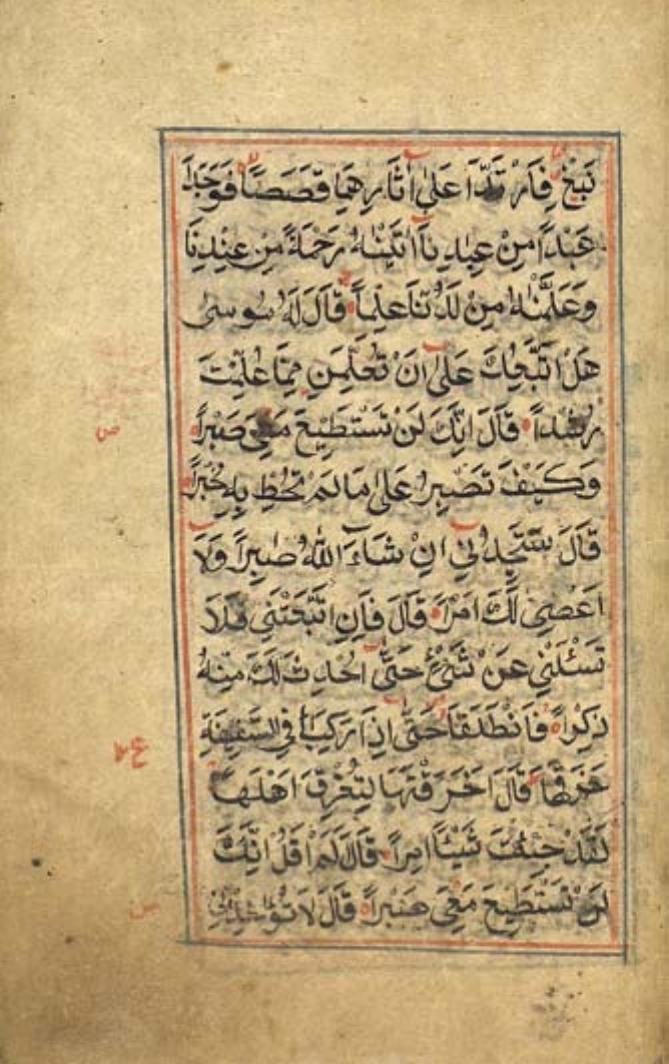 نَبْغِ فَارْتَدَّا عَلٰى اٰثَارِهِمَا قَصَصًا فَوَجَدَا
عَبْدًا مِنْ عِبَادِنَا اٰتَيْنٰهُ رَحْمَةً مِنْ عِنْدِنَا
وَعَلَّمْنٰهُ مِنْ لَدُنَّا عِلْمًا قَالَ لَهُ مُوسٰى
هَلْ اَتَّبِعُكَ عَلٰى اَنْ تُعَلِّمَنِ مِمَّا عُلِّمْتَ
رُشْدًا قَالَ اِنَّكَ لَنْ تَسْتَطِيعَ مَعِىَ صَبْرًا
وَكَيْفَ تَصْبِرُ عَلٰى مَا لَمْ تُحِطْ بِهِ خُبْرًا
قَالَ سَتَجِدُنِى اِنْ شَاءَ اللّٰهُ صَابِرًا وَلَا
اَعْصِى لَكَ اَمْرًا قَالَ فَاِنِ اتَّبَعْتَنِى فَلَا
تَسْئَلْنِى عَنْ شَىْءٍ حَتّٰى اُحْدِثَ لَكَ مِنْهُ
ذِكْرًا فَانْطَلَقَا حَتّٰى اِذَا رَكِبَا فِى السَّفِينَةِ
خَرَقَهَا قَالَ اَخَرَقْتَهَا لِتُغْرِقَ اَهْلَهَا
لَقَدْ جِئْتَ شَيْئًا اِمْرًا قَالَ اَلَمْ اَقُلْ اِنَّكَ
لَنْ تَسْتَطِيعَ مَعِىَ صَبْرًا قَالَ لَا تُؤَاخِذْنِى